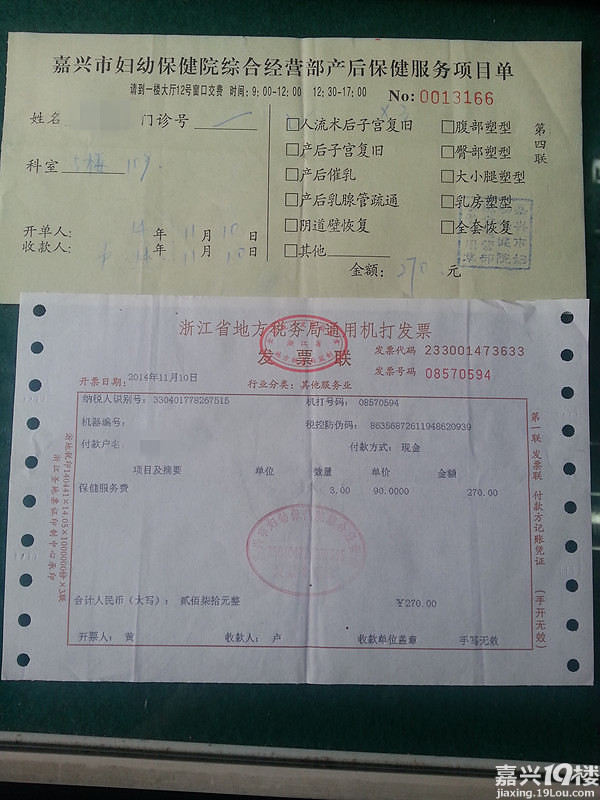 嘉兴市妇幼保健院综合经营部产后保健服务项目单
请到一楼大厅12号窗口交费 时间：9：00-12：00 12：30-17：00
No:0013166
姓名 门诊号
科室
□人流术后子宫复旧 □腹部塑型
□产后子宫复旧 □臀部塑型
□产后催乳 □大小腿塑型
□产后乳腺管疏通 □乳房塑型
□阴道壁恢复 □全套恢复
□其他
第四联
开单人： 14 年 11 月 10 日
收款人： 14 年 11 月 10 日
金额： 270 元
浙江省地方税务局通用机打发票
发票联
发票代码 233001473633
发票号码 08570594
开票日期： 2014年11月10日
行业分类：其他服务业
纳税人识别号：330401778267515 机打号码：08570594
机器编号： 税控防伪码：86356872611948620939
付款户名： 付款方式：现金
项目及摘要 单位 数量 单价 金额
保健服务费 3.00 90.0000 270.00
合计人民币（大写）：贰佰柒拾元整 ￥270.00
开票人：黄 收款人：卢 收款单位盖章 手写无效
第一联 发票联 付款方记账凭证 （手开无效）
嘉兴19楼
jiaxing.19Lou.com